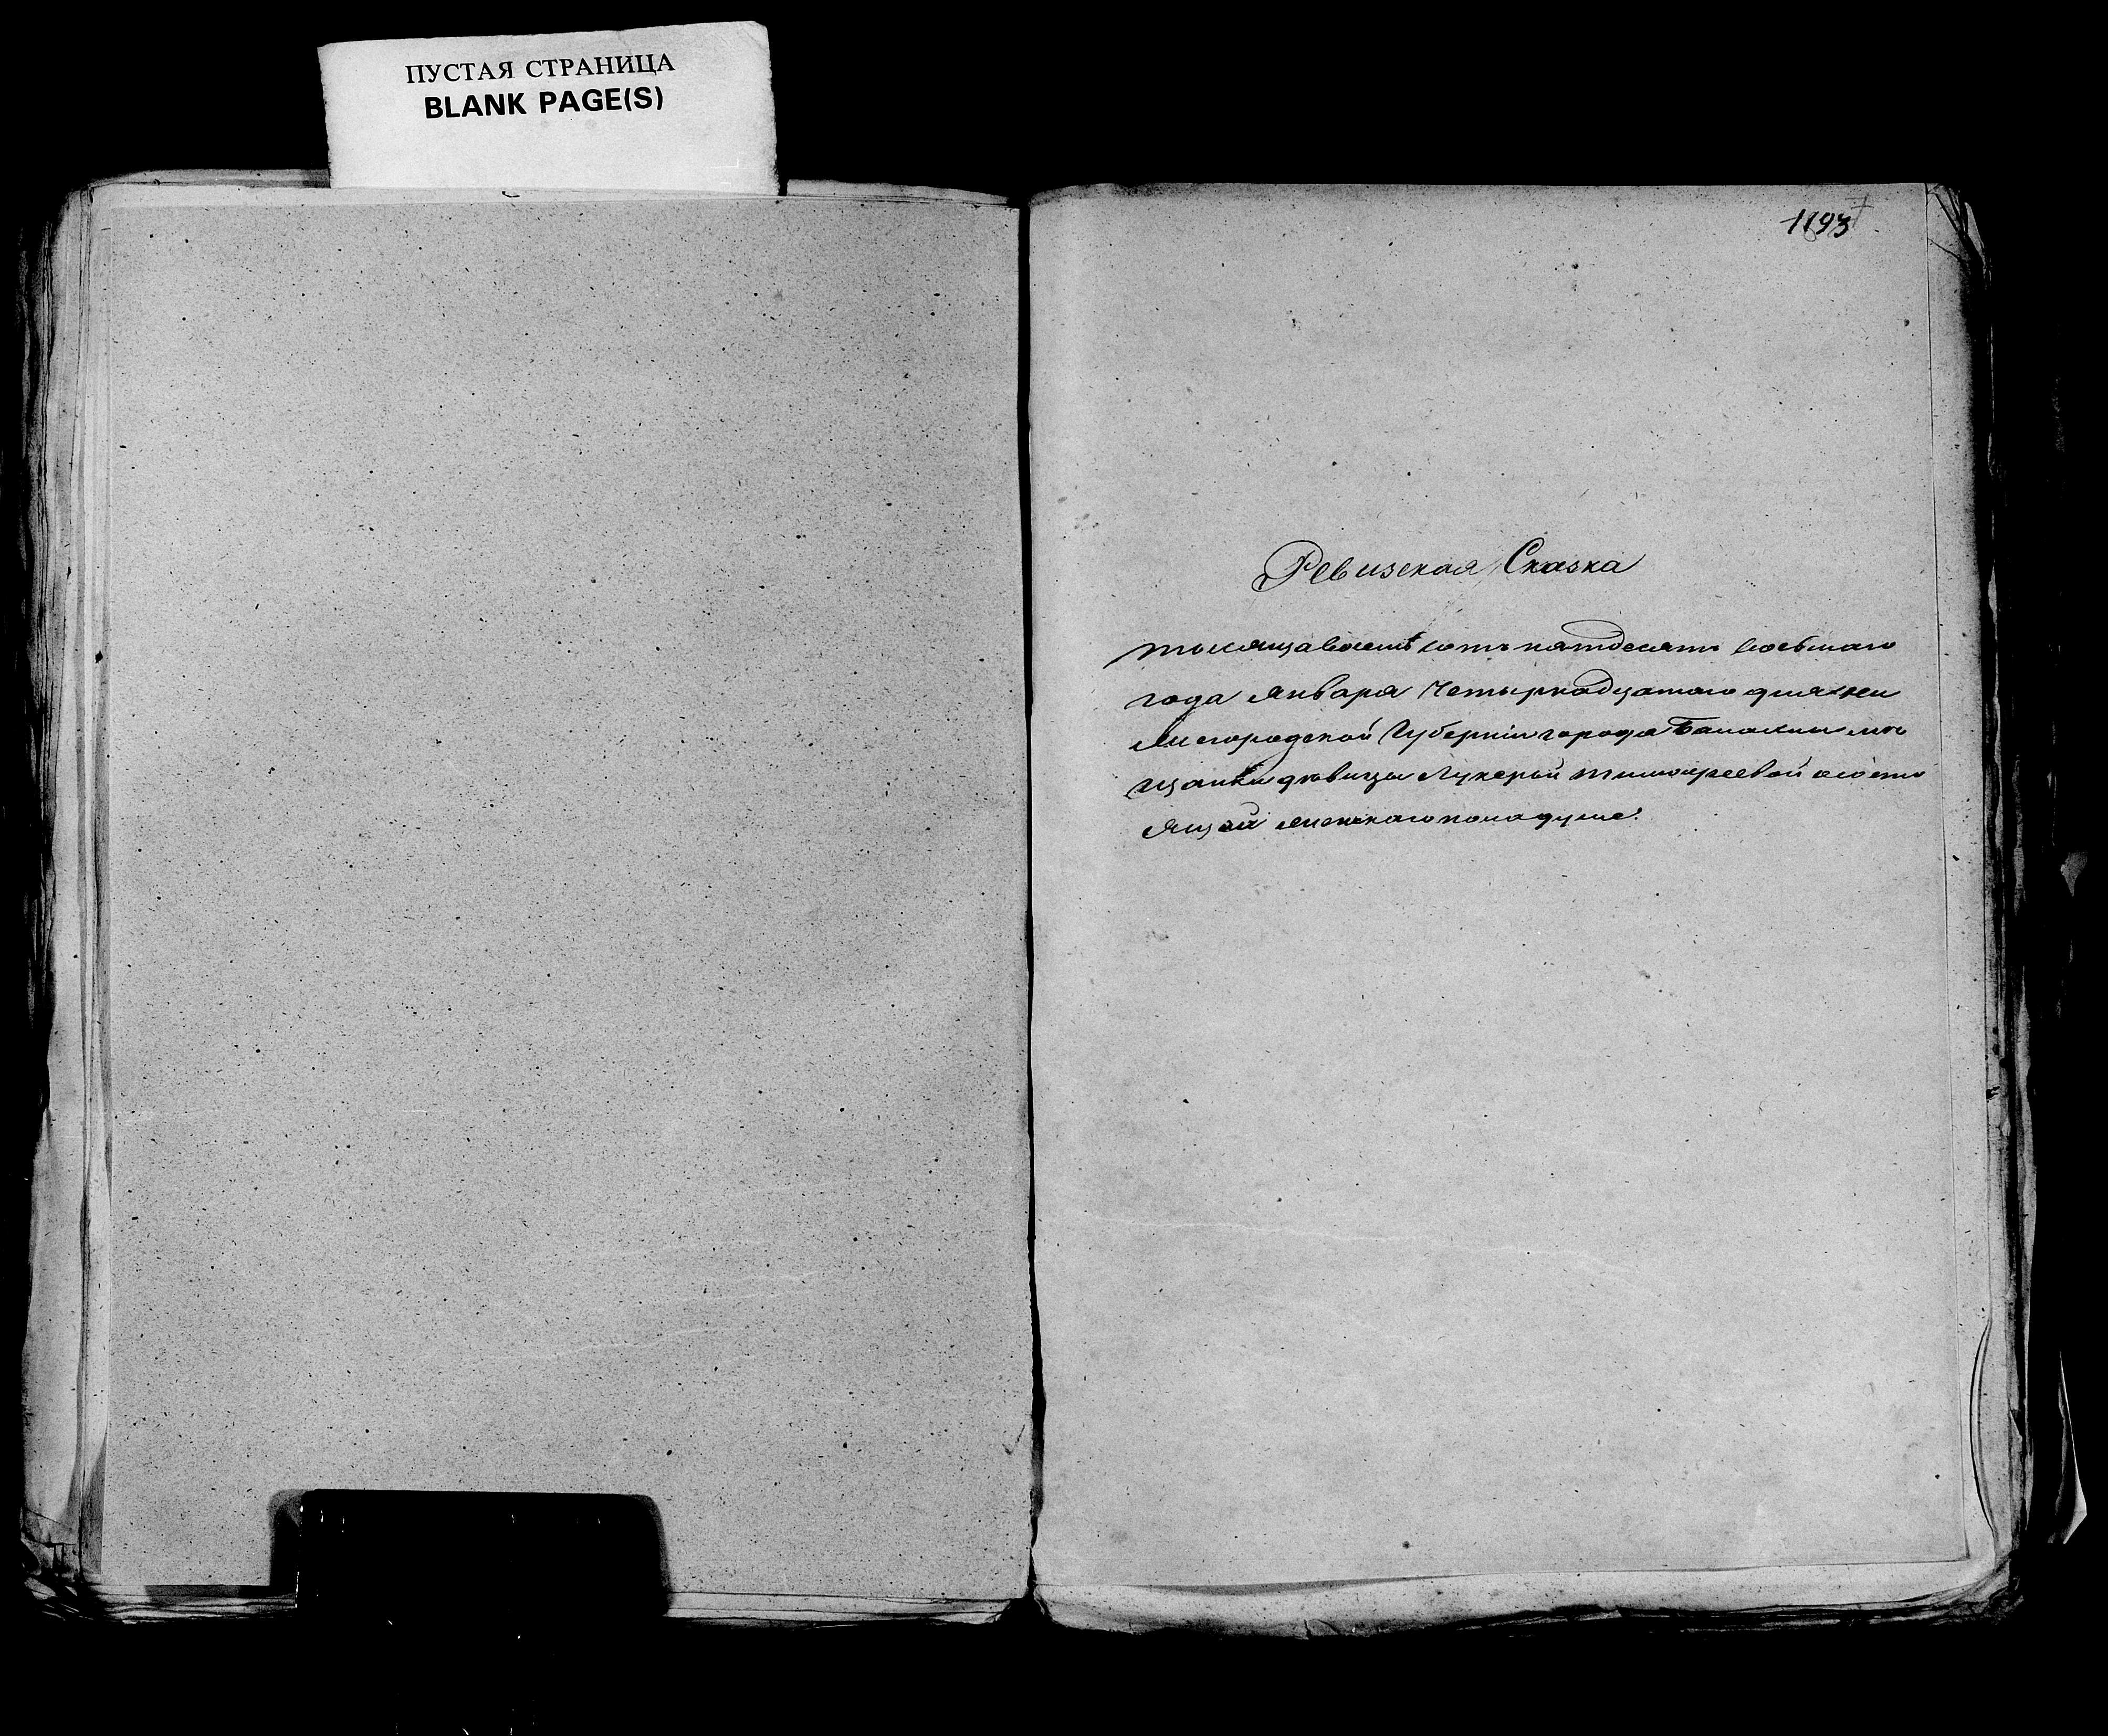 ПУСТАЯ СТРАНИЦА
BLANK PAGE(S)
1193
Ревизская Сказка
тысяща восемь сотъ пятдесятъ восьмаго
года января Четырнадцатого дня Ни
жегородской Губерніи города Балахны мѣ
щанки дѣвицы Лукерьи Тимофеевой ососто
ящей женскаго пола душе.